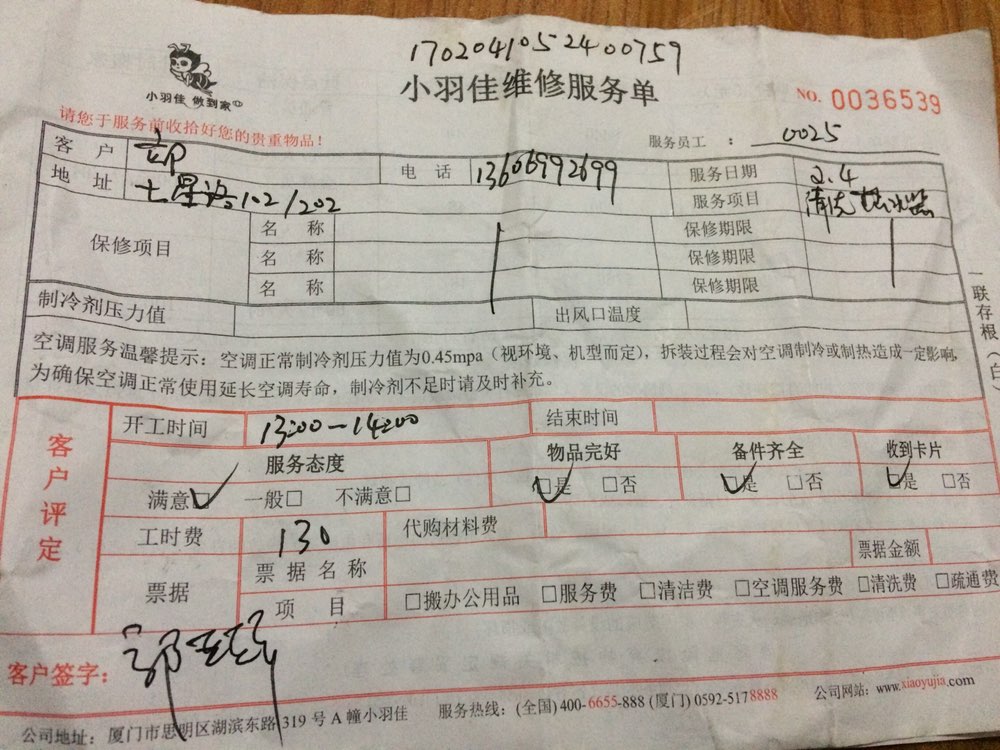 1702041052400759
小羽佳 做到家
小羽佳维修服务单
NO. 0036539
请您于服务前收拾好您的贵重物品！
服务员工 ： 0025
客 户 电 话 13606992699 服务日期 2.4
地 址 七星路102/202 服务项目 清洗热水器
保修项目 名 称 保修期限
名 称 保修期限
名 称 保修期限
制冷剂压力值 出风口温度
空调服务温馨提示：空调正常制冷剂压力值为0.45mpa（视环境、机型而定），拆装过程会对空调制冷或制热造成一定影响，
为确保空调正常使用延长空调寿命，制冷剂不足时请及时补充。
一联存根（白）
客户评定
开工时间 13:00-14:00 结束时间
服务态度 物品完好 备件齐全 收到卡片
满意□ 一般□ 不满意□ □是 □否 □是 □否 □是 □否
工时费 130 代购材料费
票据 票据名称 票据金额
项 目 □搬办公用品 □服务费 □清洁费 □空调服务费 □清洗费 □疏通费
客户签字：
公司地址：厦门市思明区湖滨东路 319 号 A 幢小羽佳 服务热线：(全国) 400-6655-888 (厦门) 0592-5178888 公司网站：www.xiaoyujia.com